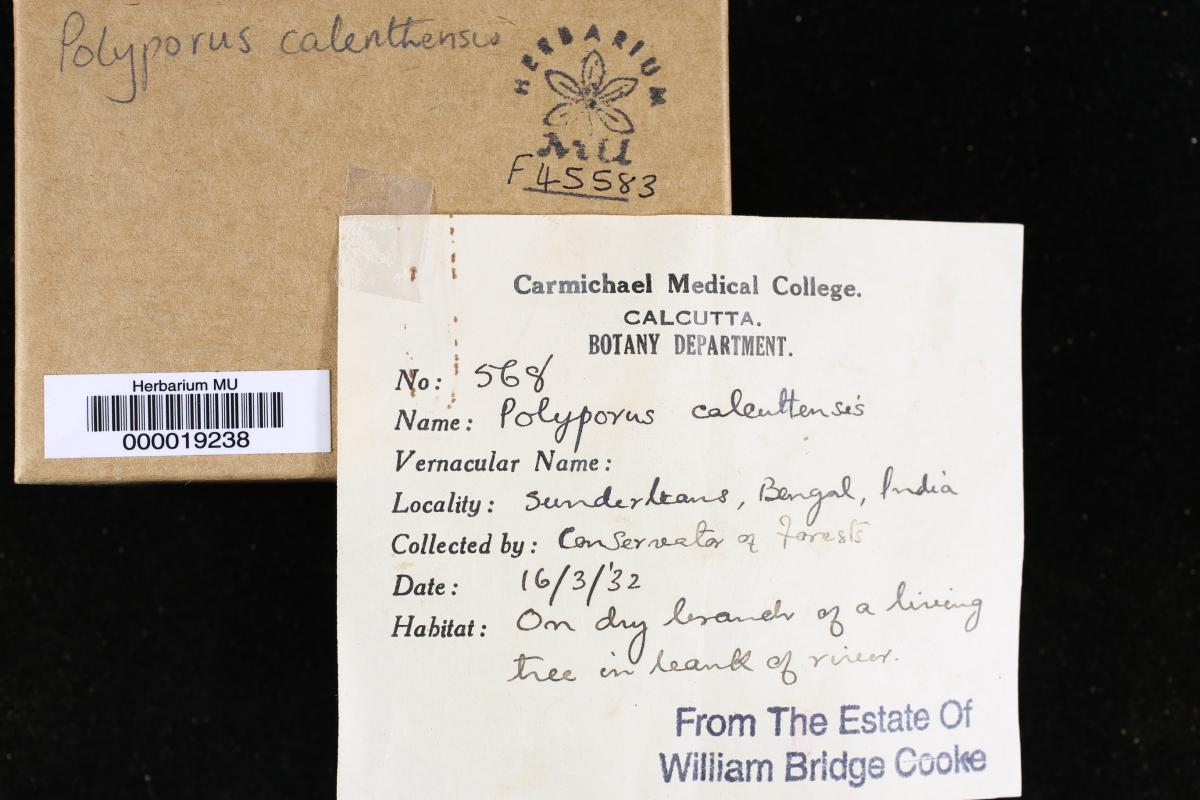 Polyporus calcuttensis
HERBARIUM
MU
F 45583
Herbarium MU
000019238
Carmichael Medical College.
CALCUTTA.
BOTANY DEPARTMENT.
No: 568
Name: Polyporus calcuttensis
Vernacular Name:
Locality: Sunderbans, Bengal, India
Collected by: Conservator of Forests
Date: 16/3/'32
Habitat: On dry branch of a living
tree in bank of river.
From The Estate Of
William Bridge Cooke